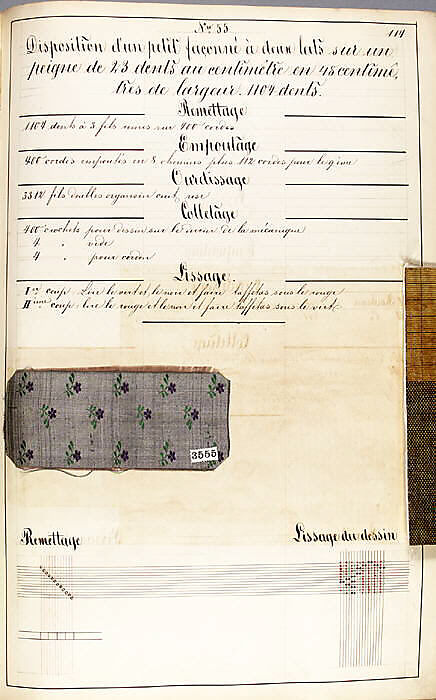 No. 33
114
Disposition d'un petit façonné à deux lats sur un
peigne de 23 dents au centimètre en 48 centimè.
tres de largeur. 1104 dents.
Remettage
1104 dents à 3 fils sur 400 cordes
Empoutage
400 cordes empoutés en 8 chemins plus 112 cordes pour le
Ourdissage
3312 fils doubles organsin cuit
Colletage
400 crochets pour dessin sur le de la mécanique
4 " vide
4 " pour cordon
Lissage.
Ier coup. Lire le vert et le noir et faire taffetas sous le rouge
IIième coup. lire le rouge et le noir et faire taffetas sous le vert
3555
Remettage
Lissage du dessin